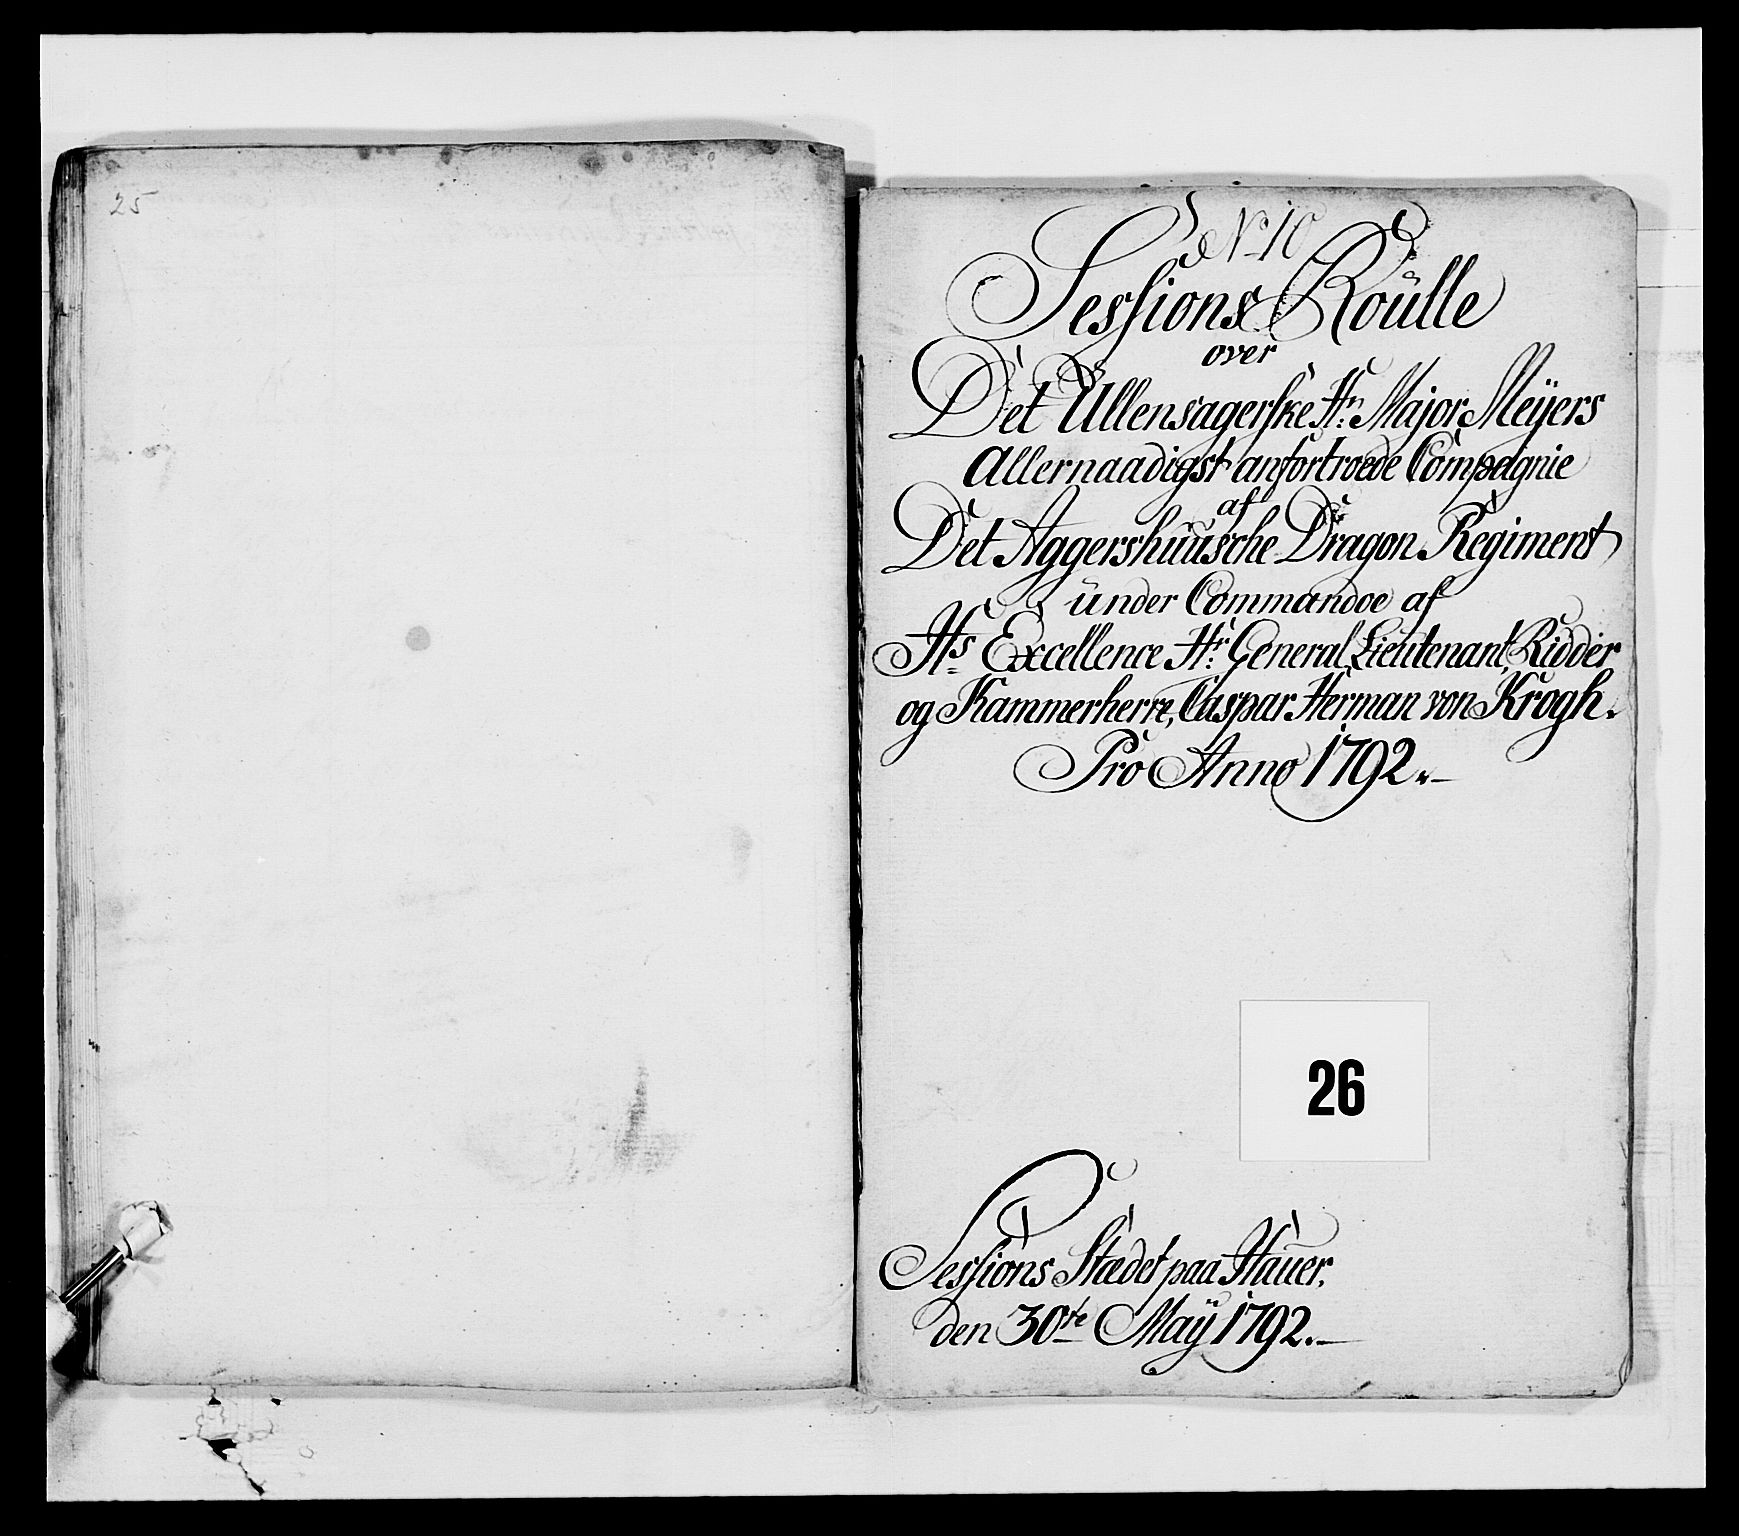 25
No 10
Sessions Roülle
over
Det Ullensagerske Hr: Major Meÿers
Allernaadigst anfortroede Compagnie
af
Det Aggershuusche Dragon Regiment
ünder Commandoe af
Hs Excellence Hr: General Lieutenant, Ridder
og Kammerherre, Caspar Herman von Krogh.
Pro Anno 1792.
26
Sessions Stædet paa Hauer.
den 30te Maÿ 1792.